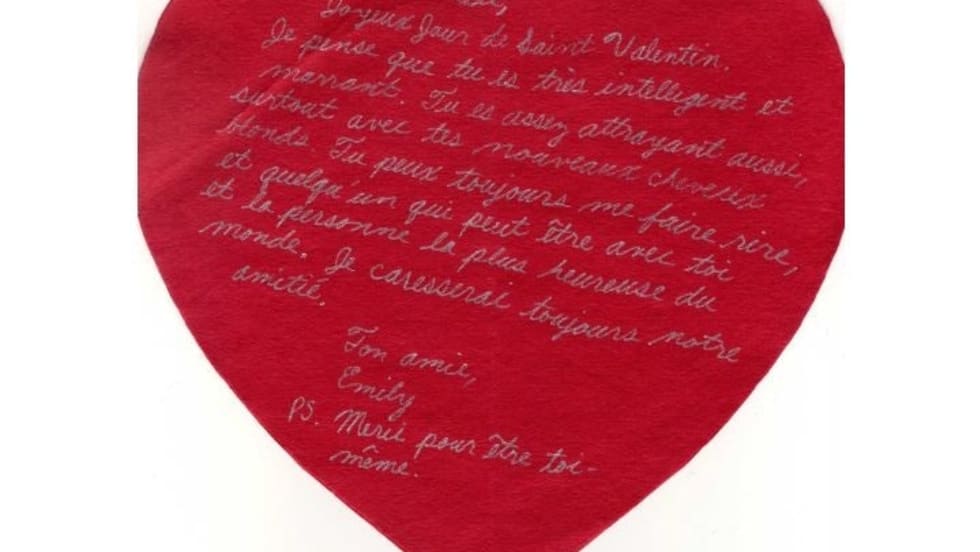 Joyeux Jour de Saint Valentin.
Je pense que tu es très intelligent et
marrant. Tu es assez attrayant aussi,
surtout avec tes nouveaux cheveux
blonds. Tu peux toujours me faire rire,
et quelqu'un qui peut être avec toi
et la personne la plus heureuse du
monde. Je caresserai toujours notre
amitié.
Ton amie,
Emily
PS. Merci pour être toi-
même.